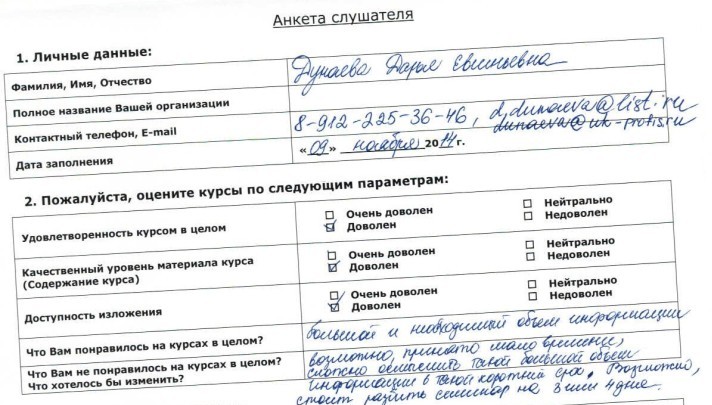 Анкета слушателя
1. Личные данные:
Фамилия, Имя, Отчество Дунаева Дарья Евгеньевна
Полное название Вашей организации
Контактный телефон, E-mail 8-912-225-36-46, d.dunaeva@list.ru
dunaeva@uk-profis.ru
Дата заполнения «09» ноября 2014 г.
2. Пожалуйста, оцените курсы по следующим параметрам:
Удовлетворенность курсом в целом ☐ Очень доволен ☐ Нейтрально
☑ Доволен ☐ Недоволен
Качественный уровень материала курса ☐ Очень доволен ☐ Нейтрально
(Содержание курса) ☑ Доволен ☐ Недоволен
Доступность изложения ☐ Очень доволен ☐ Нейтрально
☑ Доволен ☐ Недоволен
Что Вам понравилось на курсах в целом? большой и необходимый объем информации
Что Вам не понравилось на курсах в целом? возможно, мало времени,
Что хотелось бы изменить? сложно осмыслить такой большой объем
информации в такой короткий срок. Возможно,
стоит разбить семинар на 3 или 4 дня.